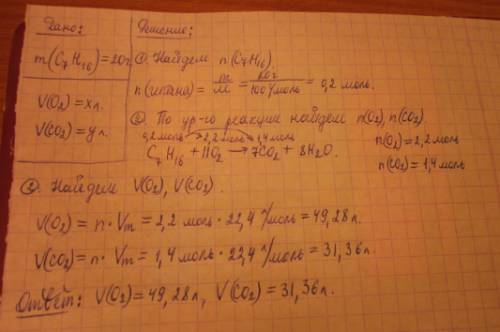 Дано:
m(C₇H₁₆)=20г.
V(O₂)=xл.
V(CO₂)=yл.
Решение:
①. Найдем n(C₇H₁₆).
n(гептана) = m/M = 20г/100г/моль = 0,2 моль.
②. По ур-ю реакции найдем n(O₂), n(CO₂).
0,2 моль 2,2 моль 1,4 моль
C₇H₁₆ + 11O₂ → 7CO₂ + 8H₂O.
n(O₂)=2,2 моль
n(CO₂)=1,4 моль
③. Найдем V(O₂), V(CO₂).
V(O₂)= n · Vm = 2,2 моль · 22,4 л/моль = 49,28 л.
V(CO₂)= n · Vm = 1,4 моль · 22,4 л/моль = 31,36 л.
Ответ: V(O₂)=49,28л, V(CO₂)=31,36л.